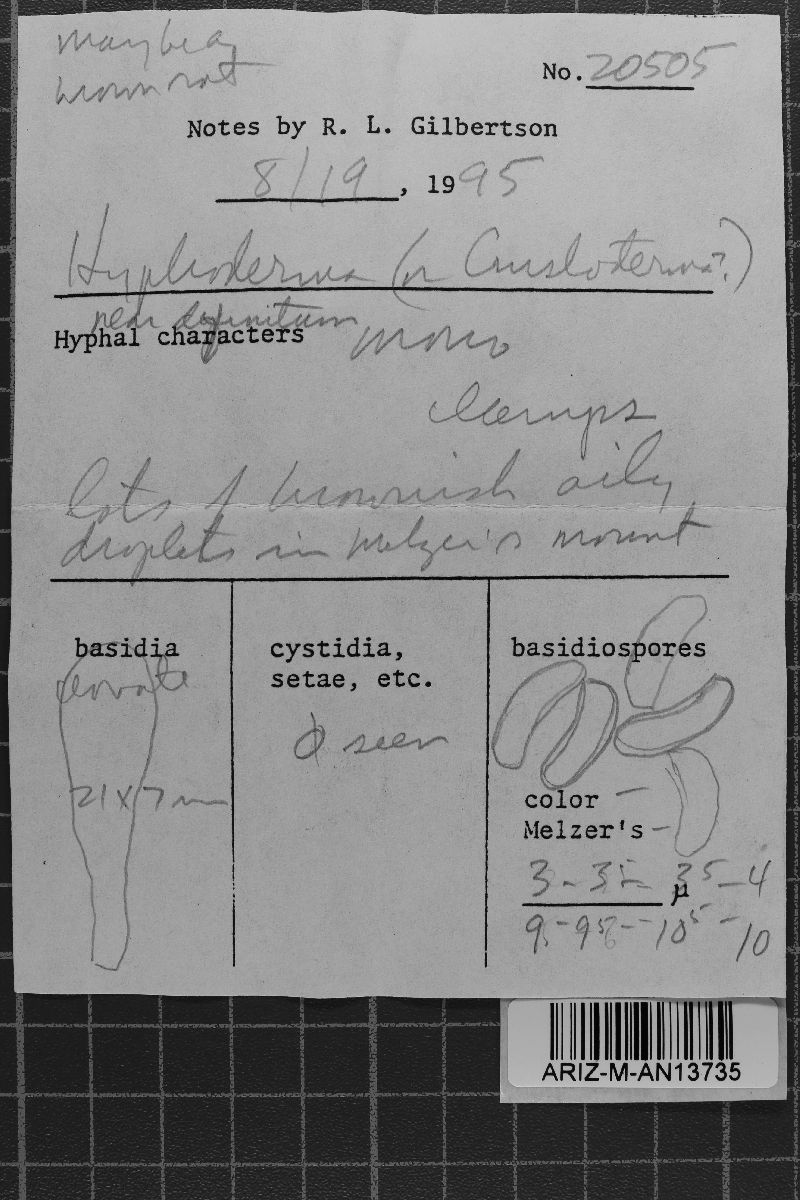 may be a
brown rot
No. 20505
Notes by R. L. Gilbertson
8/19, 1995
Hyphoderma (or Crustoderma?)
near definitum
Hyphal characters mono
clamps
lots of brownish oily
droplets in Melzer's mount
basidia
21 x 7
cystidia,
setae, etc.
φ seen
basidiospores
color –
Melzer's –
μ
ARIZ-M-AN13735